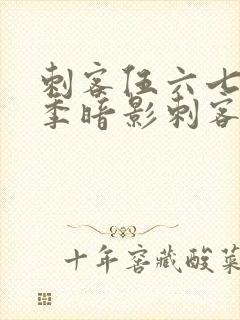 刺客伍六七
季暗影刺客
十年窖藏酸菜